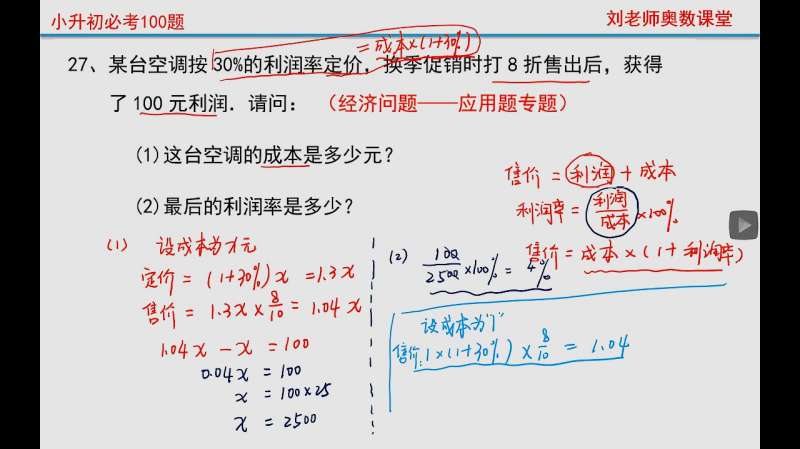 小升初必考100题
刘老师奥数课堂
=成本×(1+30%)
27、某台空调按30%的利润率定价，换季促销时打8折售出后，获得
了100元利润．请问：（经济问题——应用题专题）
(1)这台空调的成本是多少元？
售价 = 利润 + 成本
(2)最后的利润率是多少？
利润率 = 利润/成本 ×100%
售价 = 成本 × (1+利润率)
(1) 设成本为x元
定价 = (1+30%)x = 1.3x
售价 = 1.3x × 8/10 = 1.04x
1.04x - x = 100
0.04x = 100
x = 100×25
x = 2500
(2) 100/2500 ×100% = 4%
设成本为"1"
售价: 1×(1+30%) × 8/10 = 1.04